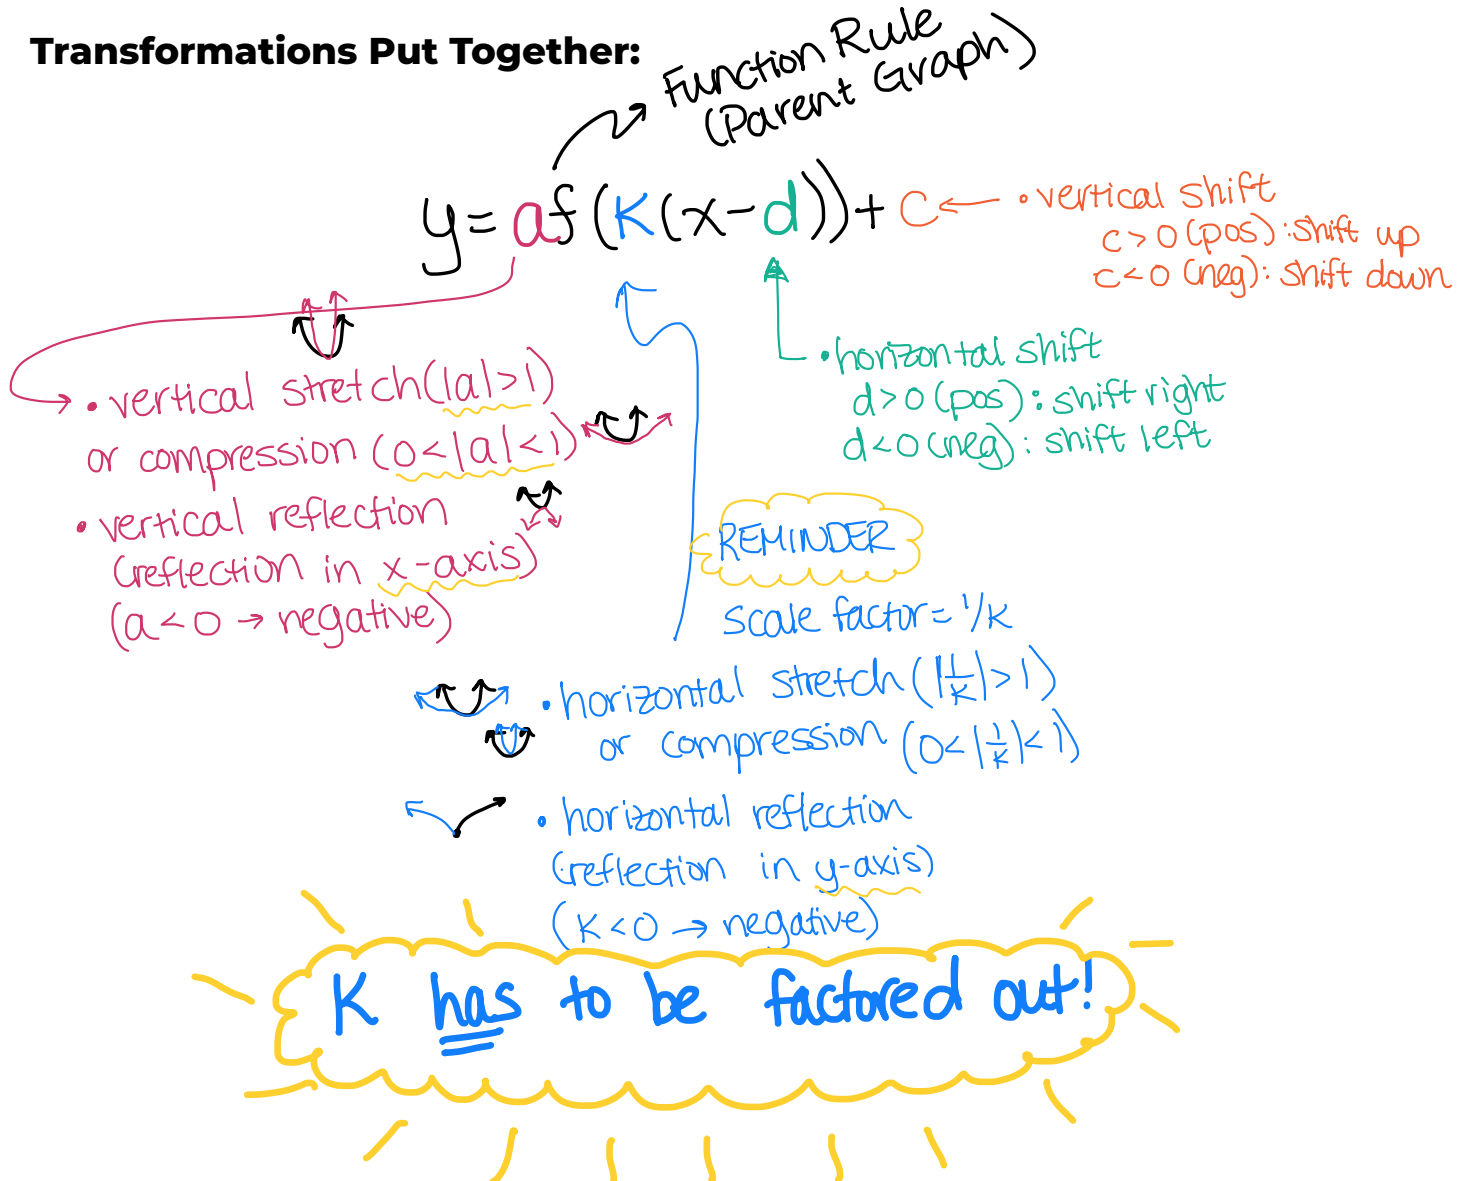 Transformations Put Together:
Function Rule
(Parent Graph)
y = af(K(x-d)) + c
• vertical shift
c > 0 (pos): shift up
c < 0 (neg): shift down
• horizontal shift
d > 0 (pos): shift right
d < 0 (neg): shift left
• vertical stretch (|a| > 1)
or compression (0 < |a| < 1)
• vertical reflection
(reflection in x-axis)
(a < 0 → negative)
REMINDER
scale factor = 1/K
• horizontal stretch (|1/K| > 1)
or compression (0 < |1/K| < 1)
• horizontal reflection
(reflection in y-axis)
(K < 0 → negative)
K has to be factored out!